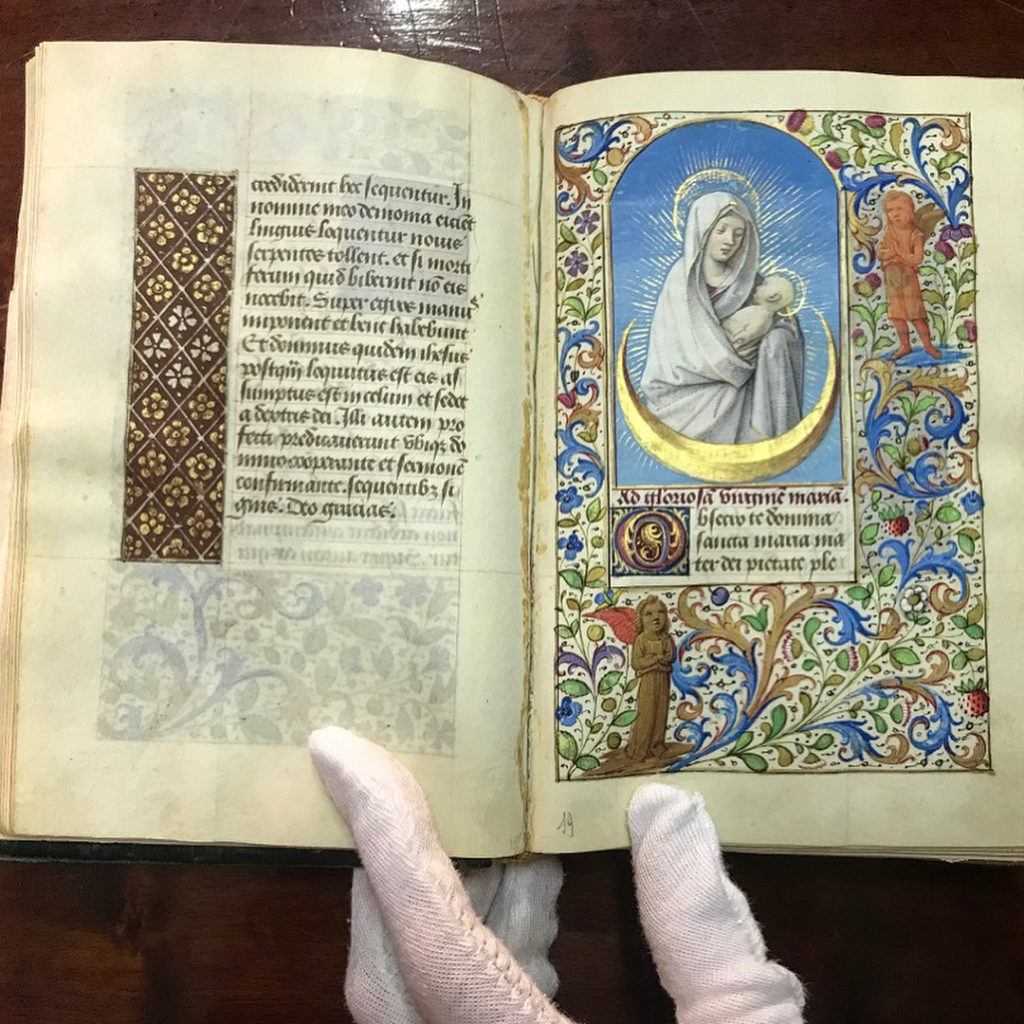 crediderint hec sequentur. In
nomine meo demonia eicient
linguis loquentur nouis
serpentes tollent. et si morti
ferum quid biberint nō eis
nocebit. Super egros manus
imponent et bene habebunt
Et dominus quidem ihesus
postqm̄ loquutus est eis as
sumptus est in celum et sedet
a dextris dei. Illi autem pro
fecti predicauerunt vbiqꝫ do
mino cooperante et sermonē
confirmante. sequentibꝫ si
gnis. Deo gracias.
Ad gloriosā virginē mariā.
Obsecro te domina
sancta maria ma
ter dei pietate ple
19